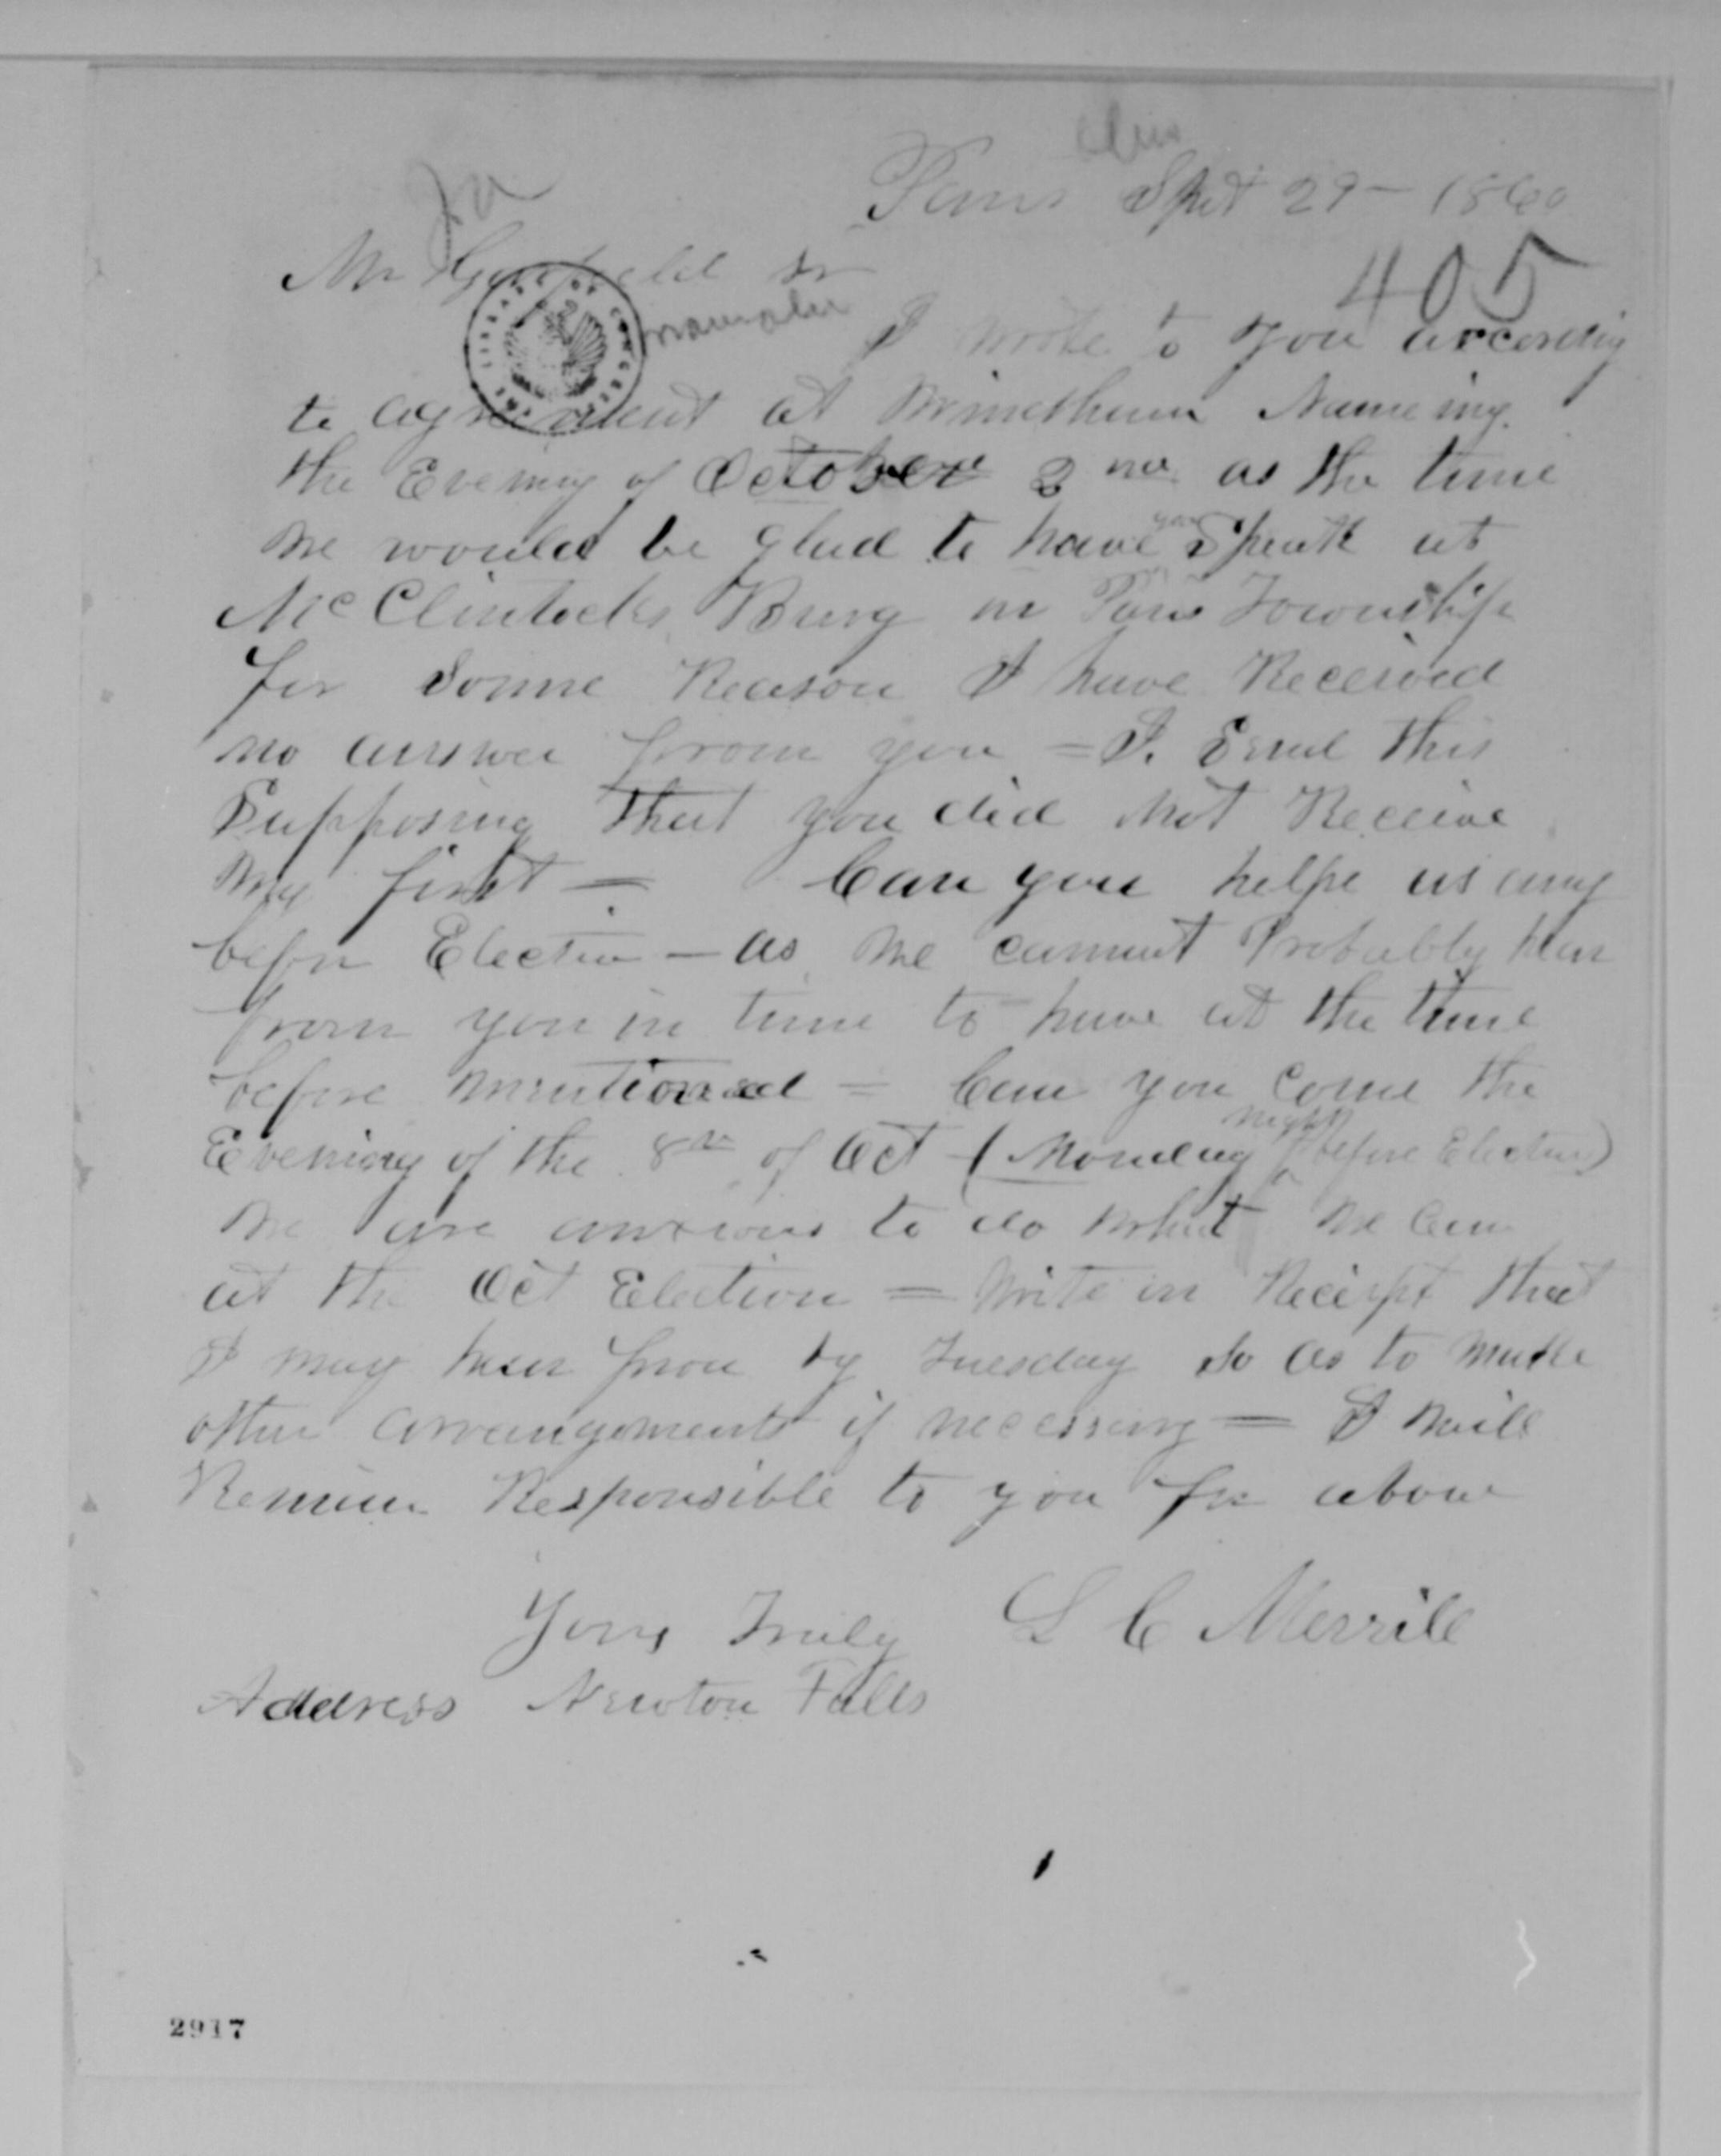 Ohio
Paris Sept 29 - 1860
Ja
Mr Garfield Sr
405
I wrote to you according
to agreement at Nameing
the Evening of October 2nd as the time
we would be glad to have you Speak at
McClintocks Burg in Paris Township
for Some Reason I have Received
no answer from you = I Send this
Supposing that you did not Receive
my first = Can you helpe us any
before Election - as we cannot Probably hear
from you in time to have at the time
before mentioned = Can you Come the
Evening of the 8th of Oct (Monday night before Election)
we are anxious to do what we Can
at the Oct Election = Write in Receipt that
I may hear from by Tuesday So as to make
other arrangements if necessary = I will
Remain Responsible to you for above
Yours Truly L C Merrill
Address Newton Falls
2917